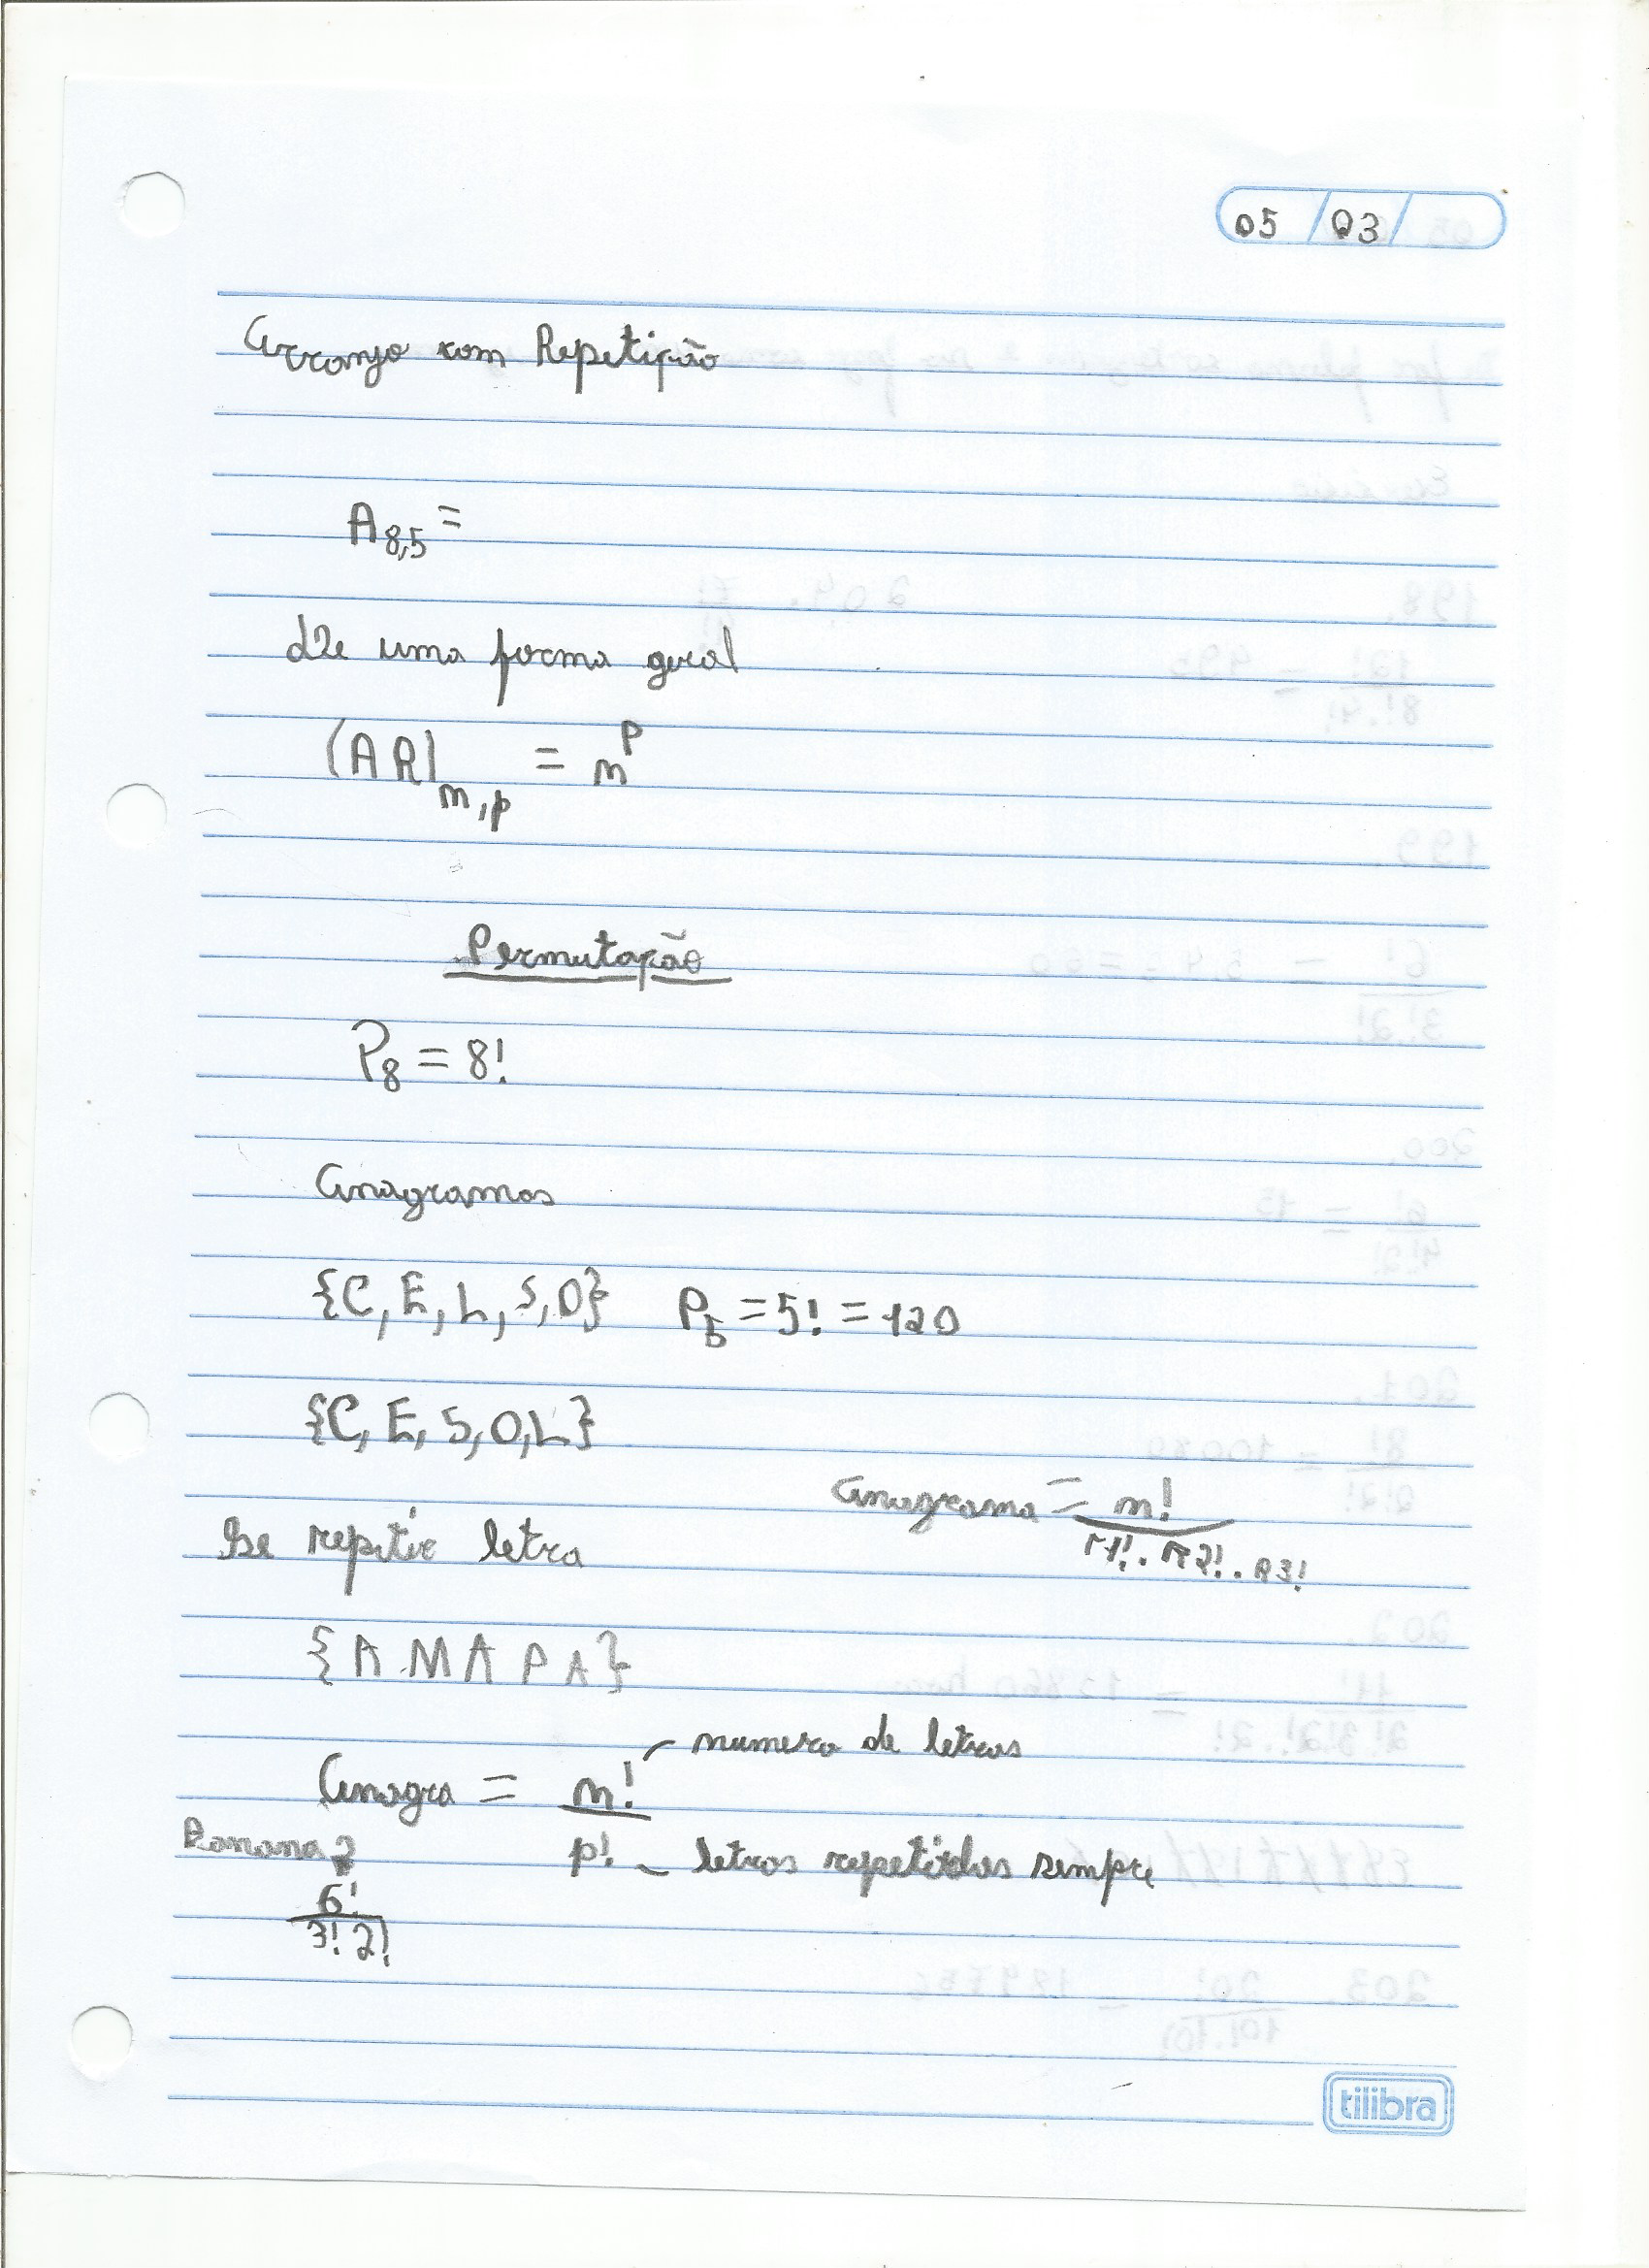 05 / 03 /
Arranjo com Repetição
A8,5 =
De uma forma geral
(AR)m,p = m^p
Permutação
P8 = 8!
Anagramas
{C, E, L, S, O} P5 = 5! = 120
{C, E, S, O, L}
Anagrama = m! / r1! . R2! . R3!
Se repetir letra
{A M A P A}
Anagra = m! / p!
numero de letras
letras repetidas sempre
Banana
6! / 3! 2!
tilibra